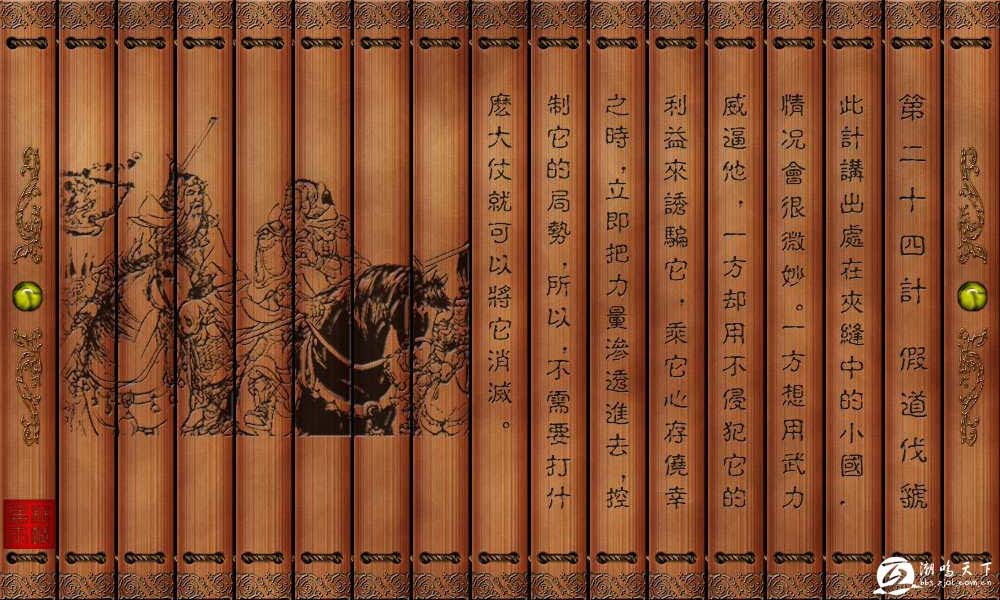 第二十四計 假道伐號
此計講出處在夾縫中的小國，
情况會很微妙。一方想用武力
威逼他，一方却用不侵犯它的
利益來誘騙它，乘它心存僥幸
之時，立即把力量滲透進去，控
制它的局勢，所以，不需要打什
麽大仗就可以將它消滅。
潮鳴天下
bbs.zjol.com.cn